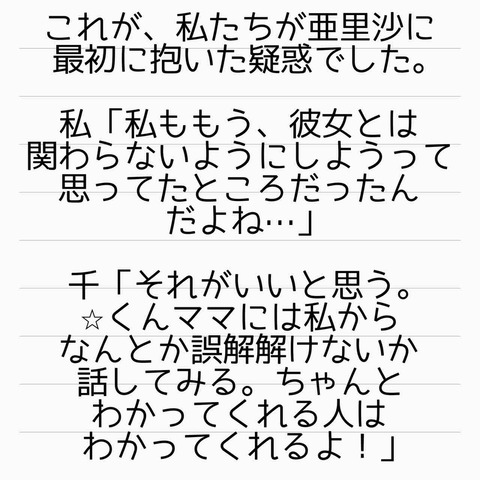 これが、私たちが亜里沙に
最初に抱いた疑惑でした。
私「私ももう、彼女とは
関わらないようにしようって
思ってたところだったん
だよね…」
千「それがいいと思う。
☆くんママには私から
なんとか誤解解けないか
話してみる。ちゃんと
わかってくれる人は
わかってくれるよ！」